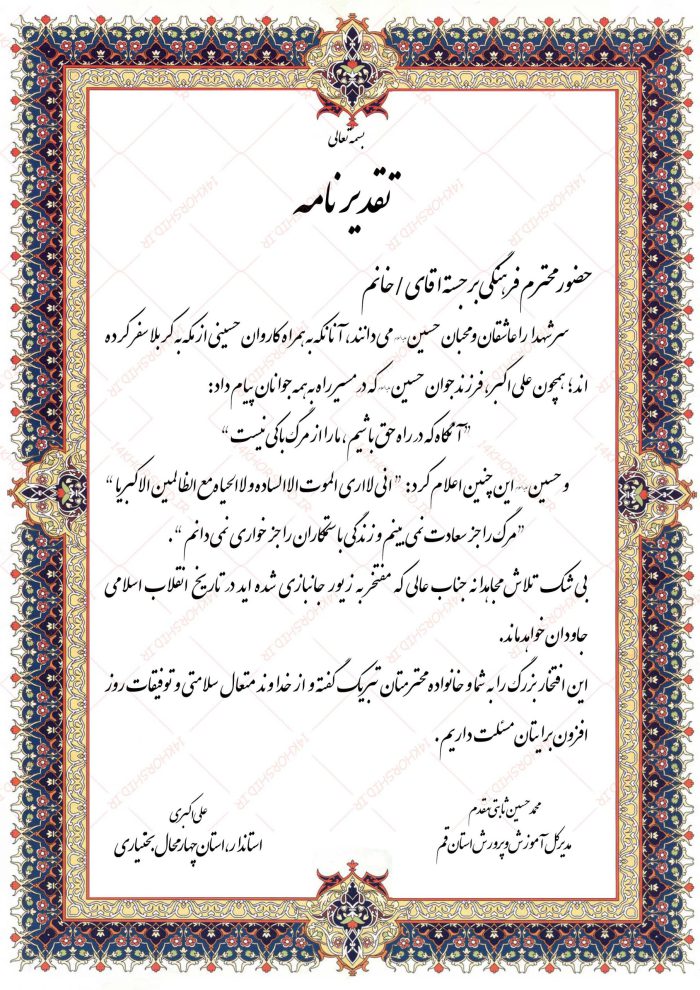 بسمه تعالی
تقدیر نامه
حضور محترم فرهنگی برجسته اقای / خانم
سر شهدا را عاشقان و محبان حسین می دانند، آنانکه به همراه کاروان حسینی از مکه به کربلا سفر کرده
اند؛ همچون علی اکبر، فرزند جوان حسین که در مسیر راه به همه جوانان پیام داد:
”آنگاه که در راه حق باشیم، ما را از مرگ باکی نیست“
و حسین این چنین اعلام کرد: ”انی لااری الموت الا الساده ولا الحیاه مع الظالمین الا کبریا“
”مرگ را جز سعادت نمی بینم و زندگی با ستمکاران را جز خواری نمی دانم“.
بی شک تلاش مجاهدانه جناب عالی که مفتخر به زیور جانبازی شده اید در تاریخ انقلاب اسلامی
جاودان خواهد ماند.
این افتخار بزرگ را به شما و خانواده محترمتان تبریک گفته و از خداوند متعال سلامتی و توفیقات روز
افزون برایتان مسئلت داریم.
محمد حسین ثابتی مقدم
مدیر کل آموزش و پرورش استان قم
علی اکبری
استاندار، استان چهارمحال بختیاری
14KHORSHID.IR